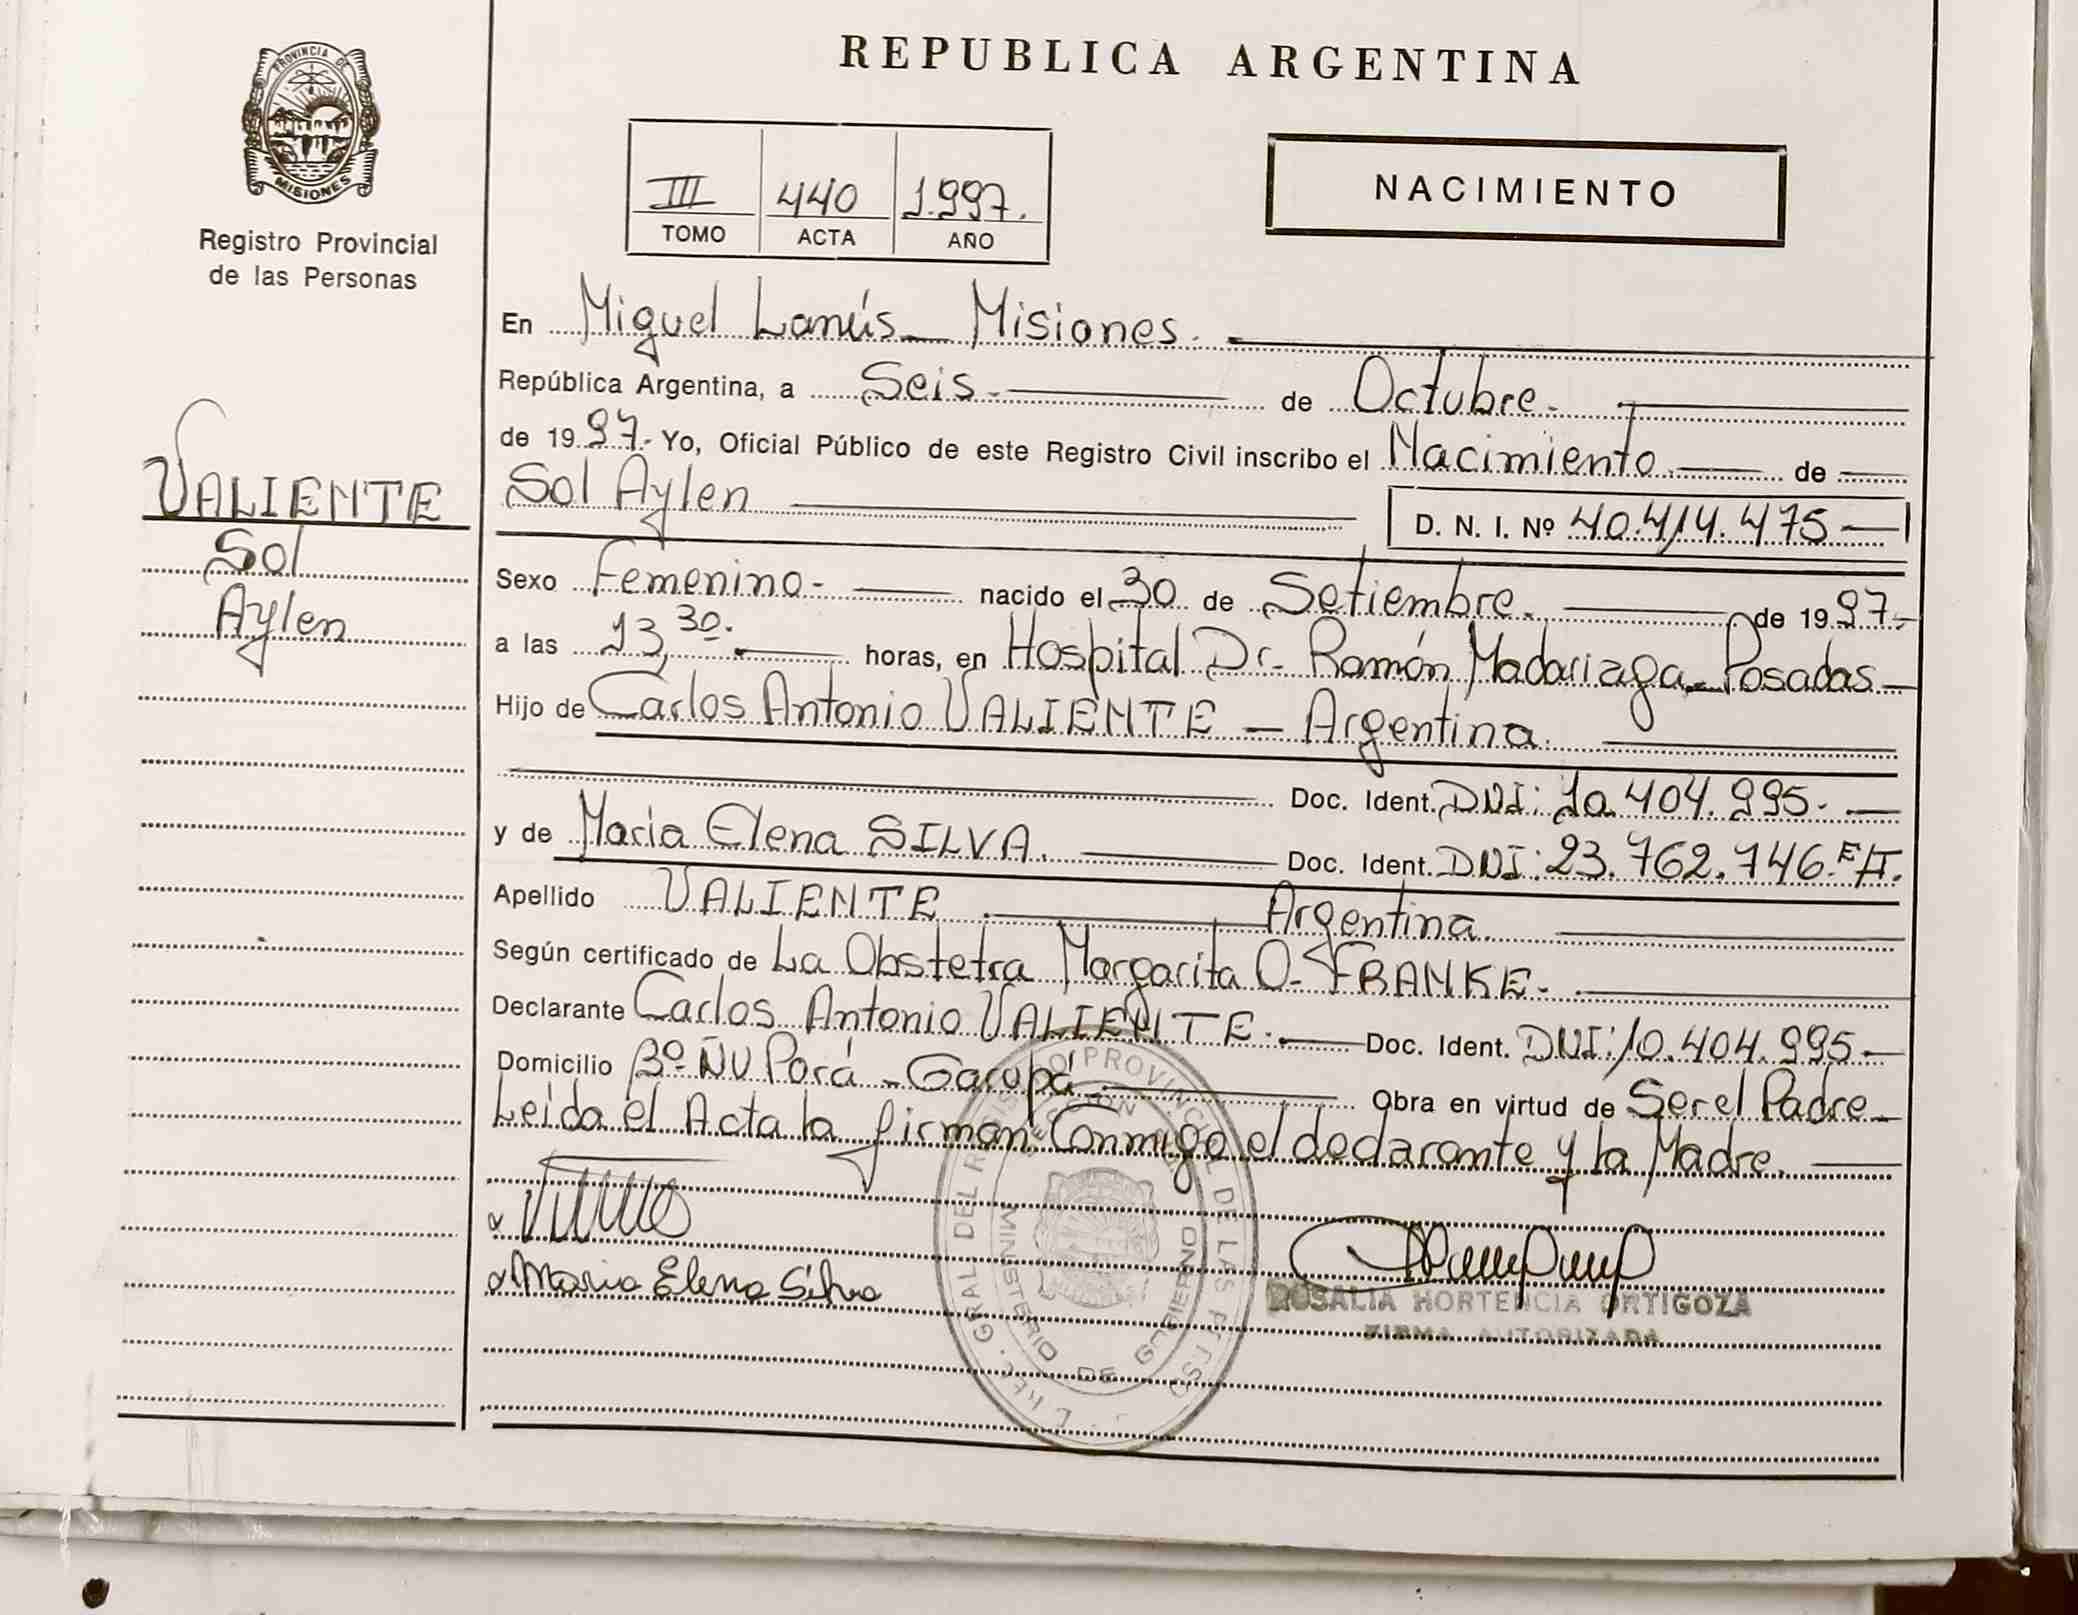 PROVINCIA DE
MISIONES
Registro Provincial
de las Personas
VALIENTE
Sol
Aylen
REPUBLICA ARGENTINA
III 440 1.997.
TOMO ACTA AÑO
NACIMIENTO
En Miguel Lanús - Misiones.
República Argentina, a Seis - de Octubre.
de 1997. Yo, Oficial Público de este Registro Civil inscribo el Nacimiento de
Sol Aylen D. N. I. Nº 40.414.475
Sexo Femenino - nacido el 30 de Setiembre. de 1997.-
a las 13,30. horas, en Hospital Dr. Ramón Madariaga - Posadas
Hijo de Carlos Antonio VALIENTE - Argentina.
Doc. Ident. DNI: 10.404.995.
y de Maria Elena SILVA. Doc. Ident. DNI: 23.762.746
Apellido VALIENTE Argentina.
Según certificado de La Obstetra Margarita O. FRANKE.
Declarante Carlos Antonio VALIENTE. Doc. Ident. DNI: 10.404.995
Domicilio Bº Ñu Porá - Garupá Obra en virtud de Ser el Padre
Leida el Acta la firman Conmigo el declarante y la Madre.
Maria Elena Silva
ROSALIA HORTENCIA ORTIGOZA
FIRMA AUTORIZADA
GRAL DEL REGISTRO PROVINCIAL DE LAS PERSONAS
MINISTERIO DE GOBIERNO